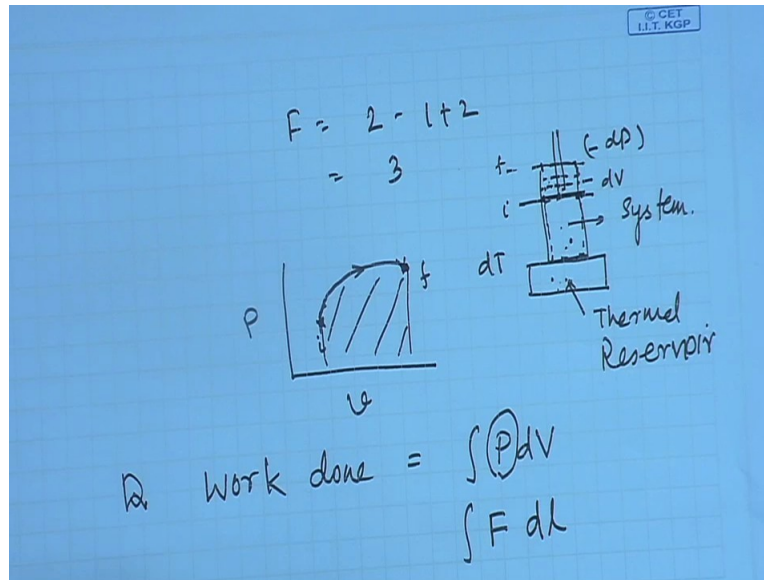 © CET
I.I.T. KGP
F = 2 - 1+2
= 3
(-dP)
f
dV
i
System.
dT
f
P
Thermal
Reservoir
v
Work done = ∫PdV
∫F dl